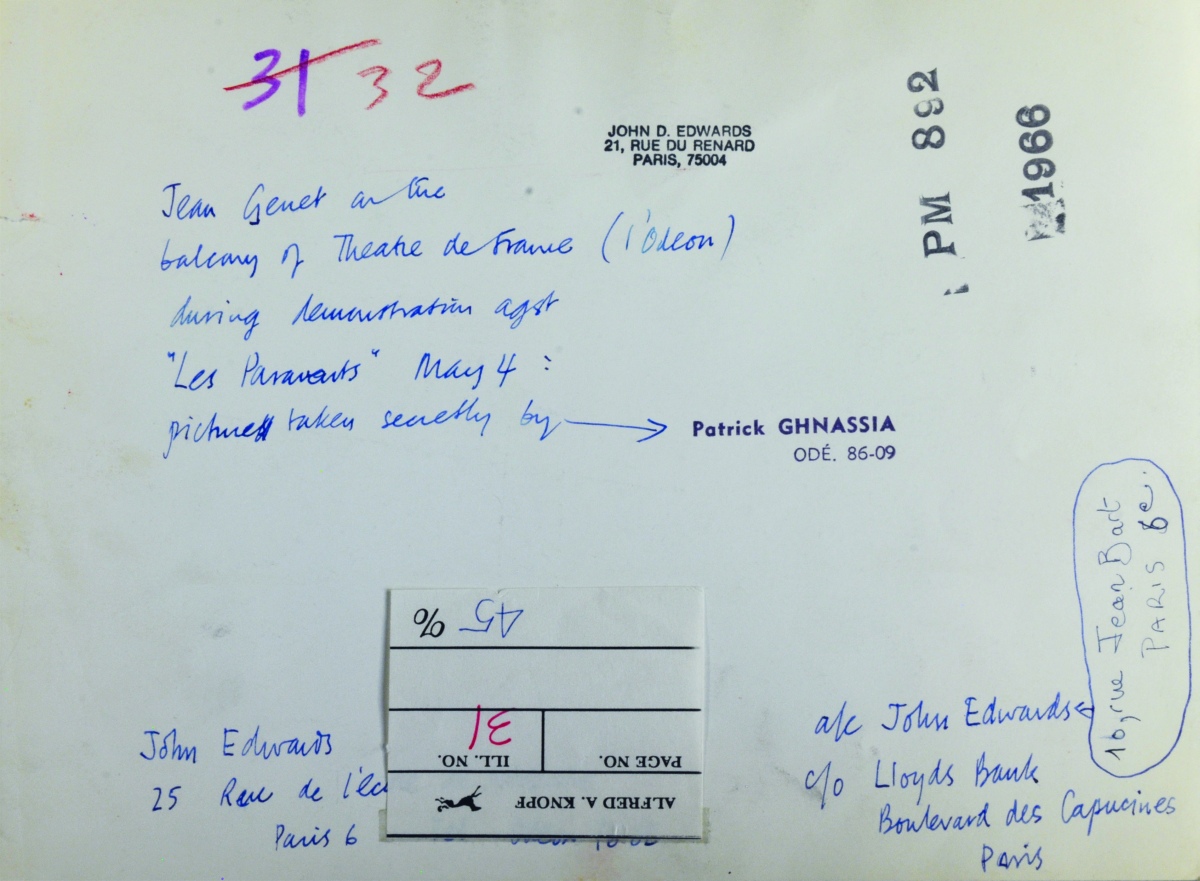 31 32
JOHN D. EDWARDS
21, RUE DU RENARD
PARIS, 75004
PM 892
1966
Jean Genet on the
balcony of Theatre de France (l'Odeon)
during demonstration agst
"Les Paravents" May 4 :
picture taken secretly by
Patrick GHNASSIA
ODÉ. 86-09
16, rue Jean Bart
PARIS 6e.
ALFRED A. KNOPF
PAGE NO.
ILL. NO.
31
45 %
John Edwards
25 Rue de l'
Paris 6
a/c John Edwards
c/o Lloyds Bank
Boulevard des Capucines
Paris